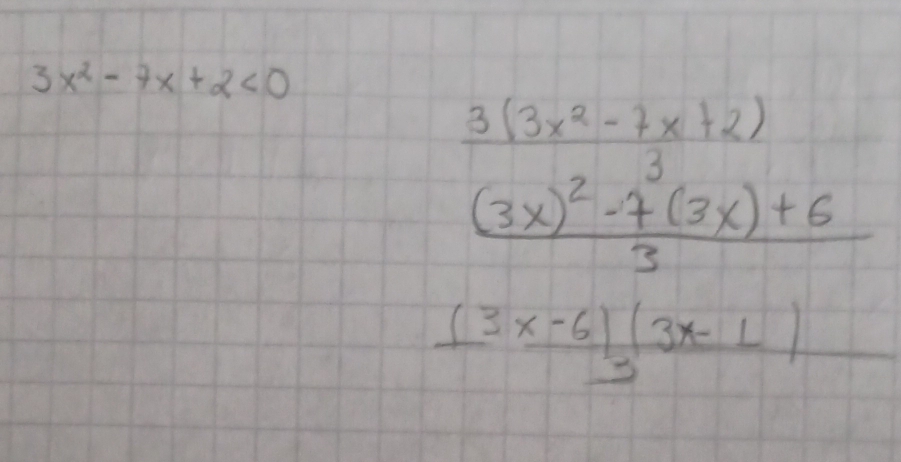 3x² - 7x + 2 < 0
3(3x² - 7x + 2)
3
(3x)² - 7(3x) + 6
3
(3x - 6)(3x - 1)
3